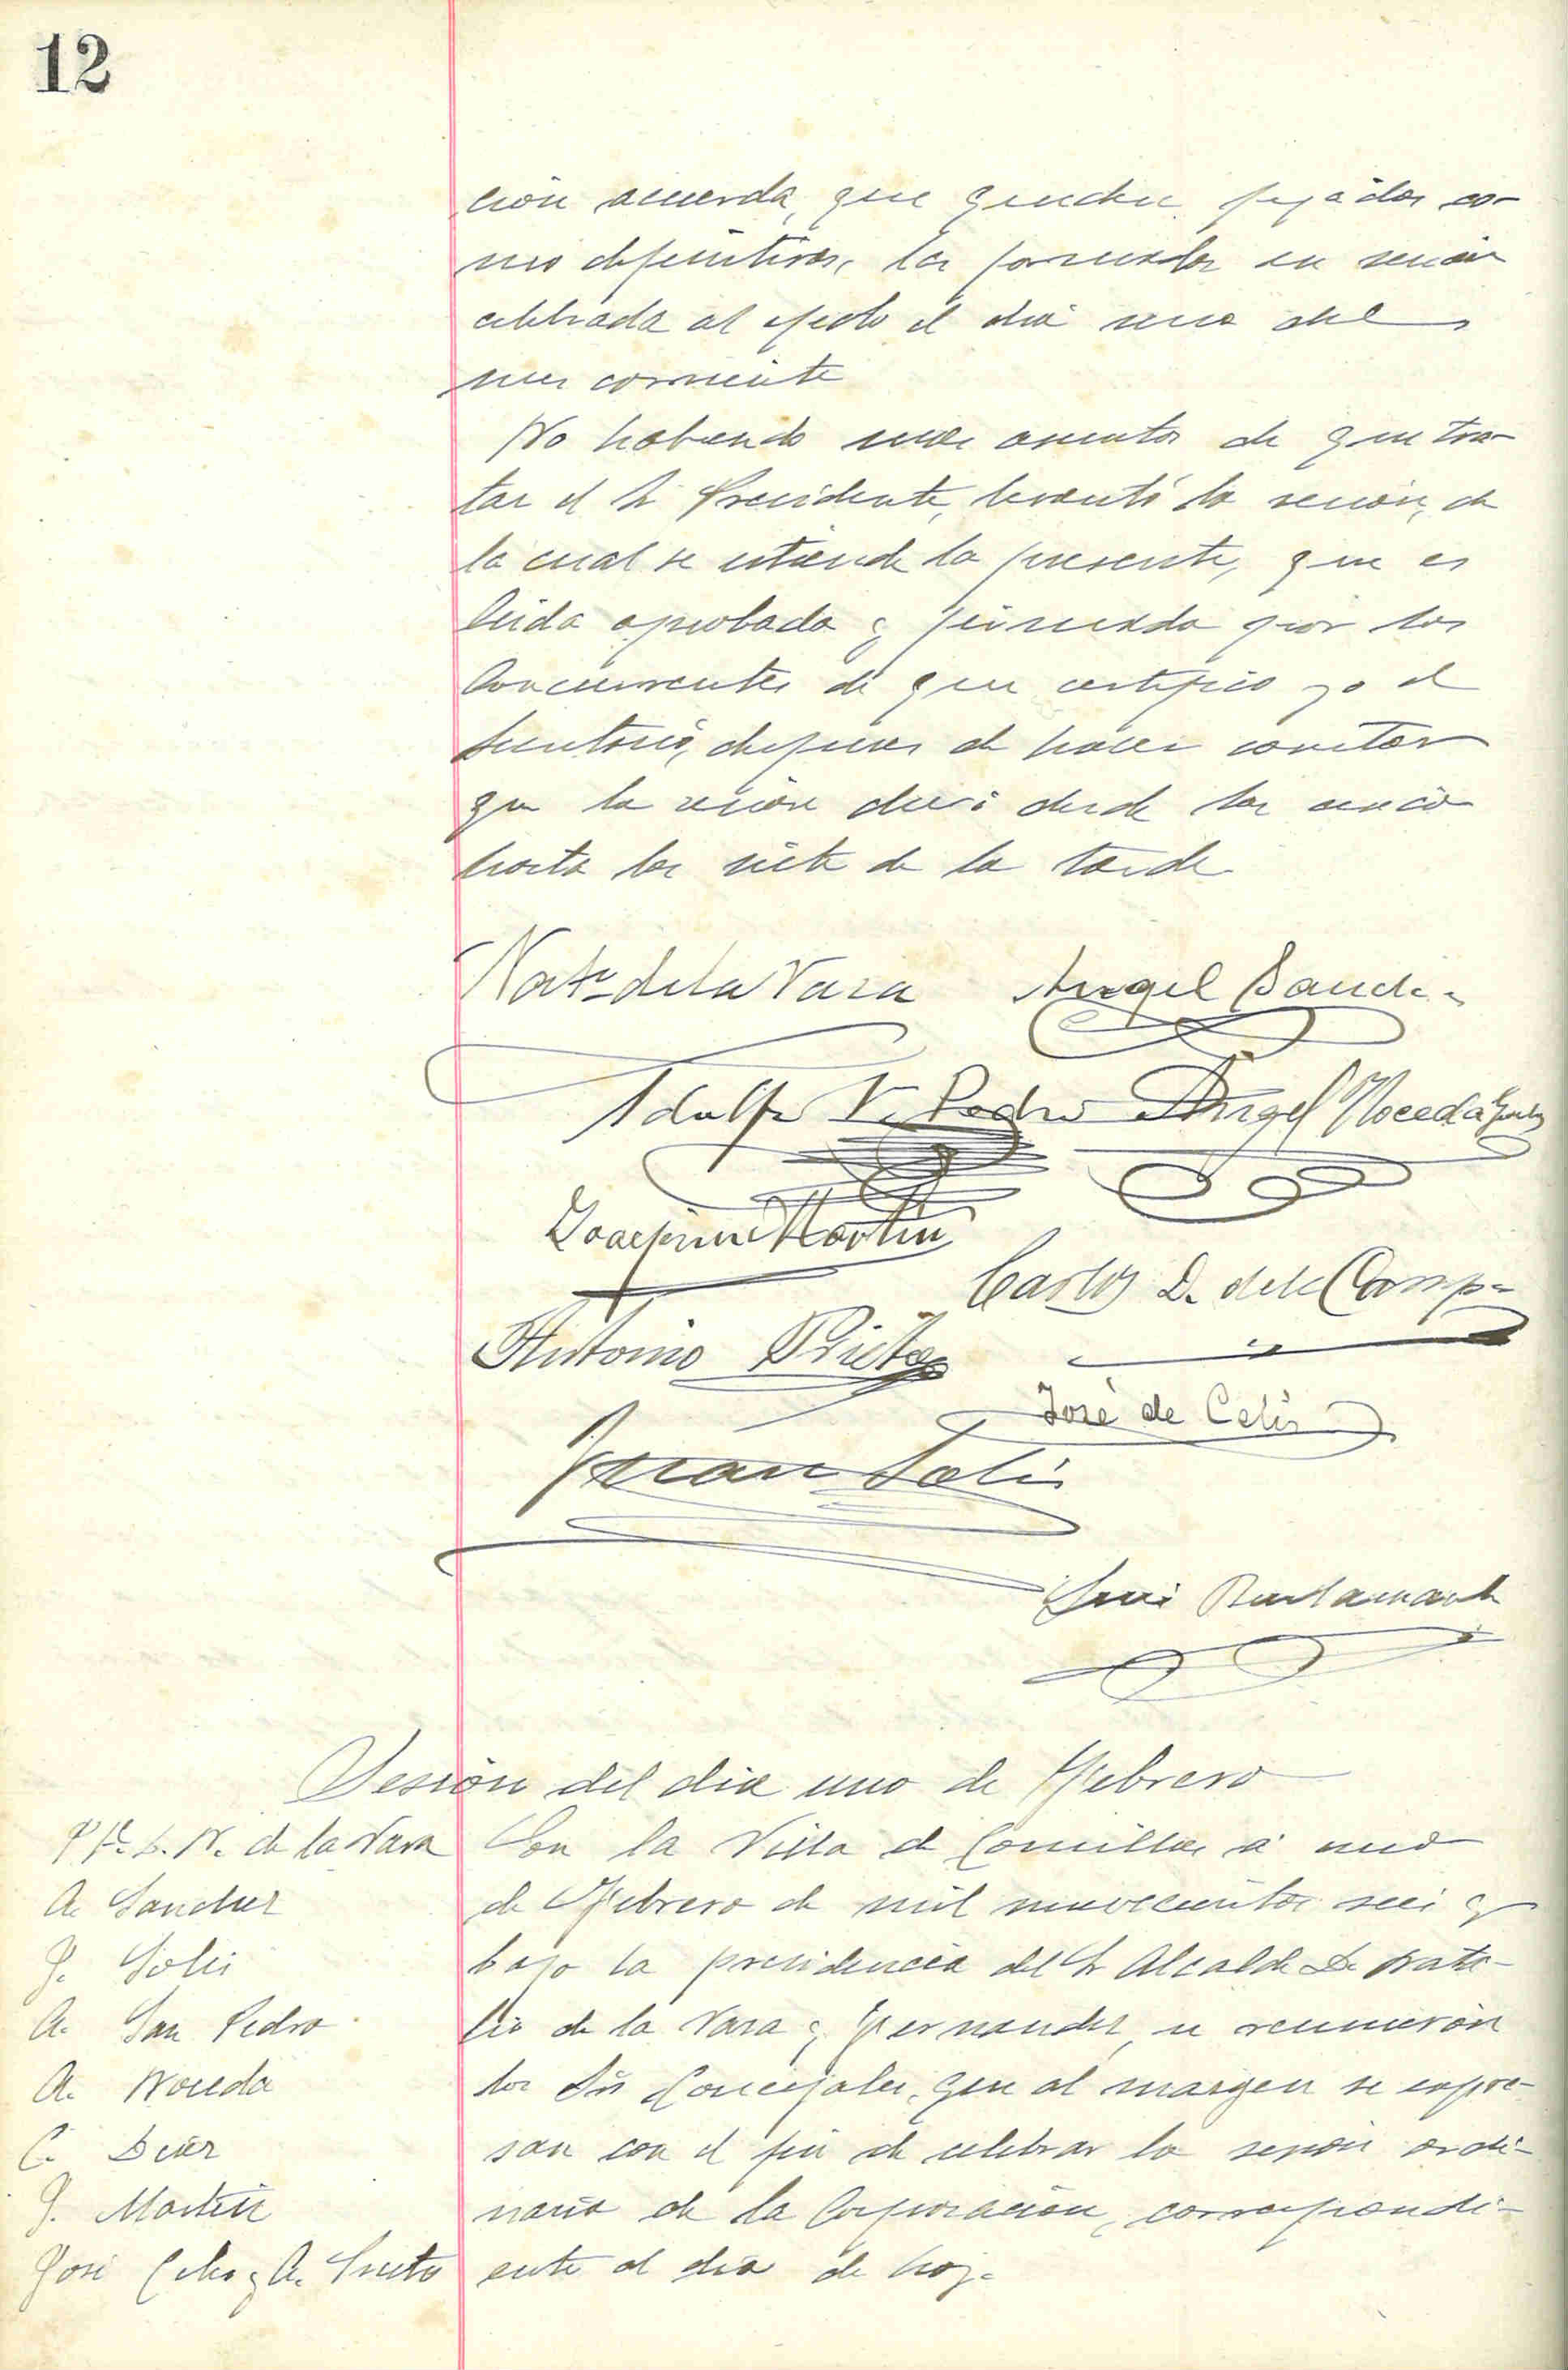 12
ción acuerda, que queden fijadas co-
mo definitivas, las formadas en sesión
celebrada al efecto el dia uno del
mes corriente
No habiendo mas asuntos de que tra-
tar el Sr Presidente, levantó la sesión, de
la cual se estiende la presente, que es
leida aprobada y firmada por los
Concurrentes de que certifico yo el
Secretario, despues de hacer constar
que la sesion duró desde las cinco
hasta las siete de la tarde
Nat.º de la Vara Angel Sanche
Adolfo S. Pedro Angel Noceda
Joaquin Martin
Carlos D. de la Campa
Antonio Prieto
José de Celis
Juan Solis
Bustamante
Sesión del dia uno de Febrero
Pte. S. N. de la Vara
A. Sanchez
J. Solis
A. San Pedro
A. Noceda
C. Diaz
J. Martin
José Celis y A. Prieto
En la Villa de Comillas á uno
de Febrero de mil novecientos seis y
bajo la presidencia del Sr Alcalde D. Nata-
lio de la Vara y Fernandez, se reunieron
los Srs Concejales, que al margen se expre-
san con el fin de celebrar la sesion ordi-
naria de la Corporacion, correspondi-
ente al dia de hoy.